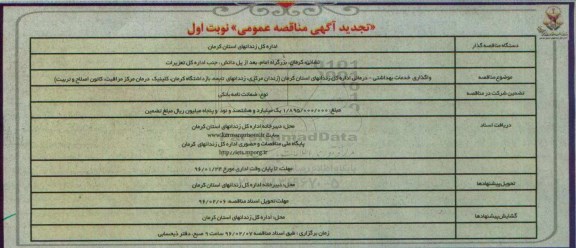 «تجدید آگهی مناقصه عمومی» نوبت اول
دستگاه مناقصه گذار
اداره کل زندانهای استان کرمان
نشانی: کرمان، بزرگراه امام، بعد از پل دانش، جنب اداره کل تعزیرات
موضوع مناقصه
واگذاری خدمات بهداشتی - درمانی اداره کل زندانهای استان کرمان (زندان مرکزی، زندانهای تابعه، بازداشتگاه کرمان، کلینیک درمان مرکز مراقبت، کانون اصلاح و تربیت)
تضمین شرکت در مناقصه
نوع: ضمانت نامه بانکی
مبلغ: ۱/۸۹۵/۰۰۰/۰۰۰ یک میلیارد و هشتصد و نود و پنجاه میلیون ریال مبلغ تضمین
دریافت اسناد
محل: دبیرخانه اداره کل زندانهای استان کرمان
سایت
پایگاه ملی مناقصات و حضوری اداره کل زندانهای کرمان
مهلت: تا پایان وقت اداری مورخ ۹۶/۰۱/۲۴
تحویل پیشنهادها
محل: دبیرخانه اداره کل زندانهای استان کرمان
مهلت تحویل اسناد مناقصه ۹۶/۰۲/۰۶
گشایش پیشنهادها
محل: اداره کل زندانهای استان کرمان
زمان برگزاری: طبق اسناد مناقصه ۹۶/۰۲/۰۷ ساعت ۹ صبح، دفتر ذیحسابی